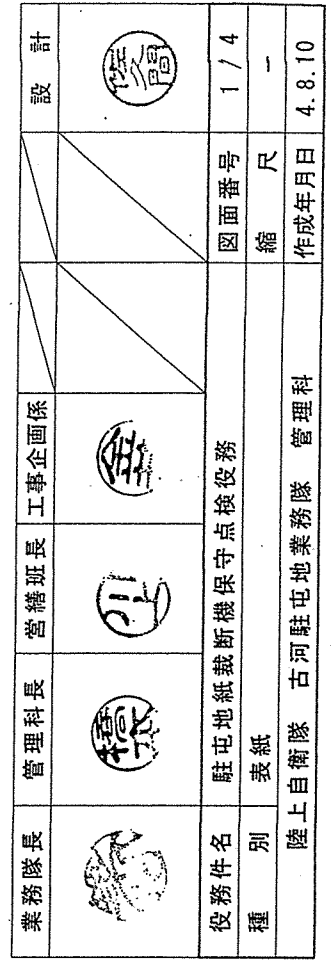 業務隊長 管理科長 営繕班長 工事企画係 設計
佐久間
役務件名 駐屯地紙裁断機保守点検役務 図面番号 1/4
種別 表紙 縮尺 −
陸上自衛隊 古河駐屯地業務隊 管理科 作成年月日 4.8.10